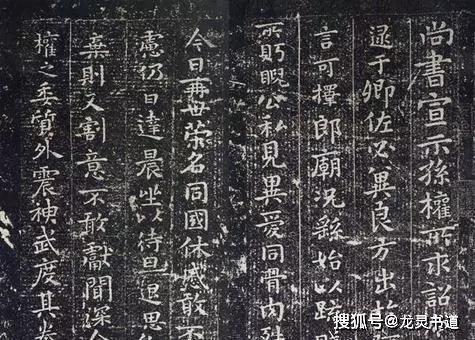 尚書宣示孫權所求詔
逮于卿佐必冀良方出於
言可擇郎廟況繇始以疏賤
所盱睨公私見異愛同骨肉殊
今日再世榮名同國休慼敢不
慮仍日達晨坐以待旦退思
棄則又割意不敢獻聞深
權之委質外震神武度其拳
搜狐号@龙灵书道